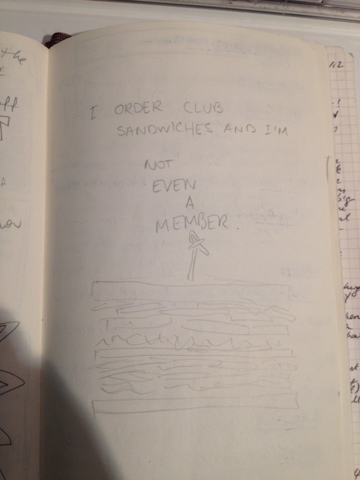 I ORDER CLUB
SANDWICHES AND I'M
NOT
EVEN
A
MEMBER.